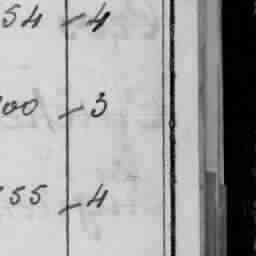 54 - 4
00 - 3
55 - 4